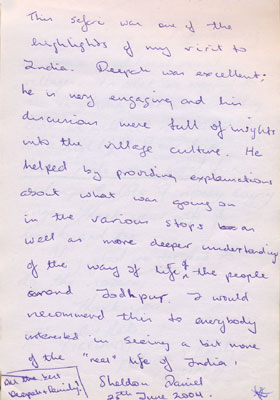 This safari was one of the
highlights of my visit to
India. Deepak was excellent;
he is very engaging and his
discussions were full of insights
into the village culture. He
helped by providing explanations
about what was going on
in the various stops as
well as more deeper understanding
of the way of life & the people
around Jodhpur. I would
recommend this to everybody
interested in seeing a bit more
of the "real" life of India.
All the best
Deepak & family!
Sheldon Daniel
25th June 2004.